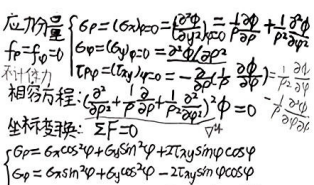 应力分量 f_ρ=f_φ=0 不计体力
σ_ρ=(σ_x)_φ=0=(∂²Φ/∂y²)_φ=0=1/ρ ∂Φ/∂ρ+1/ρ² ∂²Φ/∂φ²
σ_φ=(σ_y)_φ=0=∂²Φ/∂ρ²
τ_ρφ=(τ_xy)_φ=0=-∂/∂ρ(1/ρ ∂Φ/∂φ)=1/ρ² ∂Φ/∂φ -1/ρ ∂²Φ/∂ρ∂φ
相容方程:(∂²/∂ρ²+1/ρ ∂/∂ρ+1/ρ² ∂²/∂φ²)²Φ=0
∇⁴
坐标变换: ΣF=0
σ_ρ=σ_xcos²φ+σ_ysin²φ+2τ_xysinφcosφ
σ_φ=σ_xsin²φ+σ_ycos²φ-2τ_xysinφcosφ